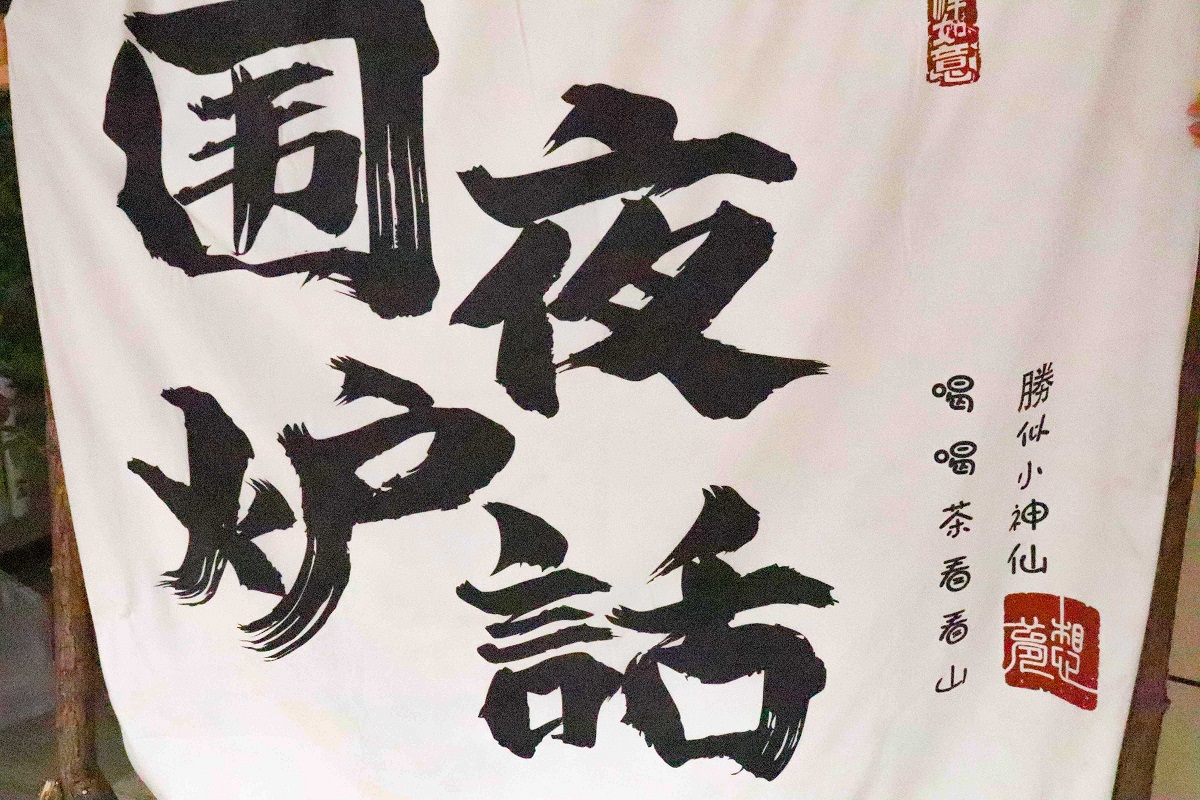 围炉
夜話
如意
喝喝茶看看山
勝似小神仙
夢想